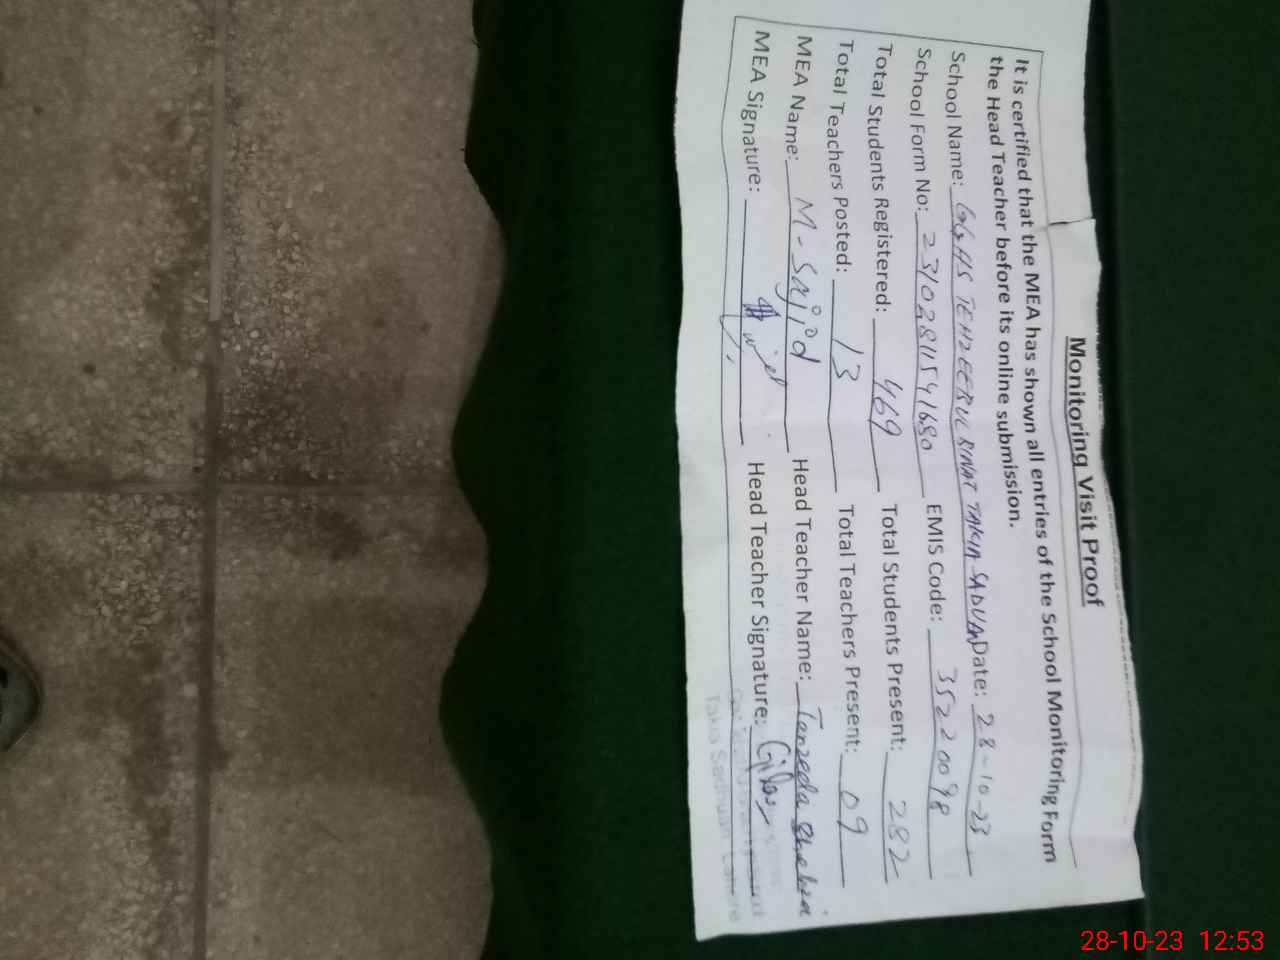 Monitoring Visit Proof
It is certified that the MEA has shown all entries of the School Monitoring Form
the Head Teacher before its online submission.
School Name: GGHS TEHZEERUL BINAT TAKIA SADUAN Date: 28-10-23
School Form No: 23102811541680 EMIS Code: 35220098
Total Students Registered: 469 Total Students Present: 282
Total Teachers Posted: 13 Total Teachers Present: 09
MEA Name: M-Sajjad Head Teacher Name: Tanzeela
MEA Signature: Head Teacher Signature:
Takia Sadhuan Lahore
28-10-23 12:53